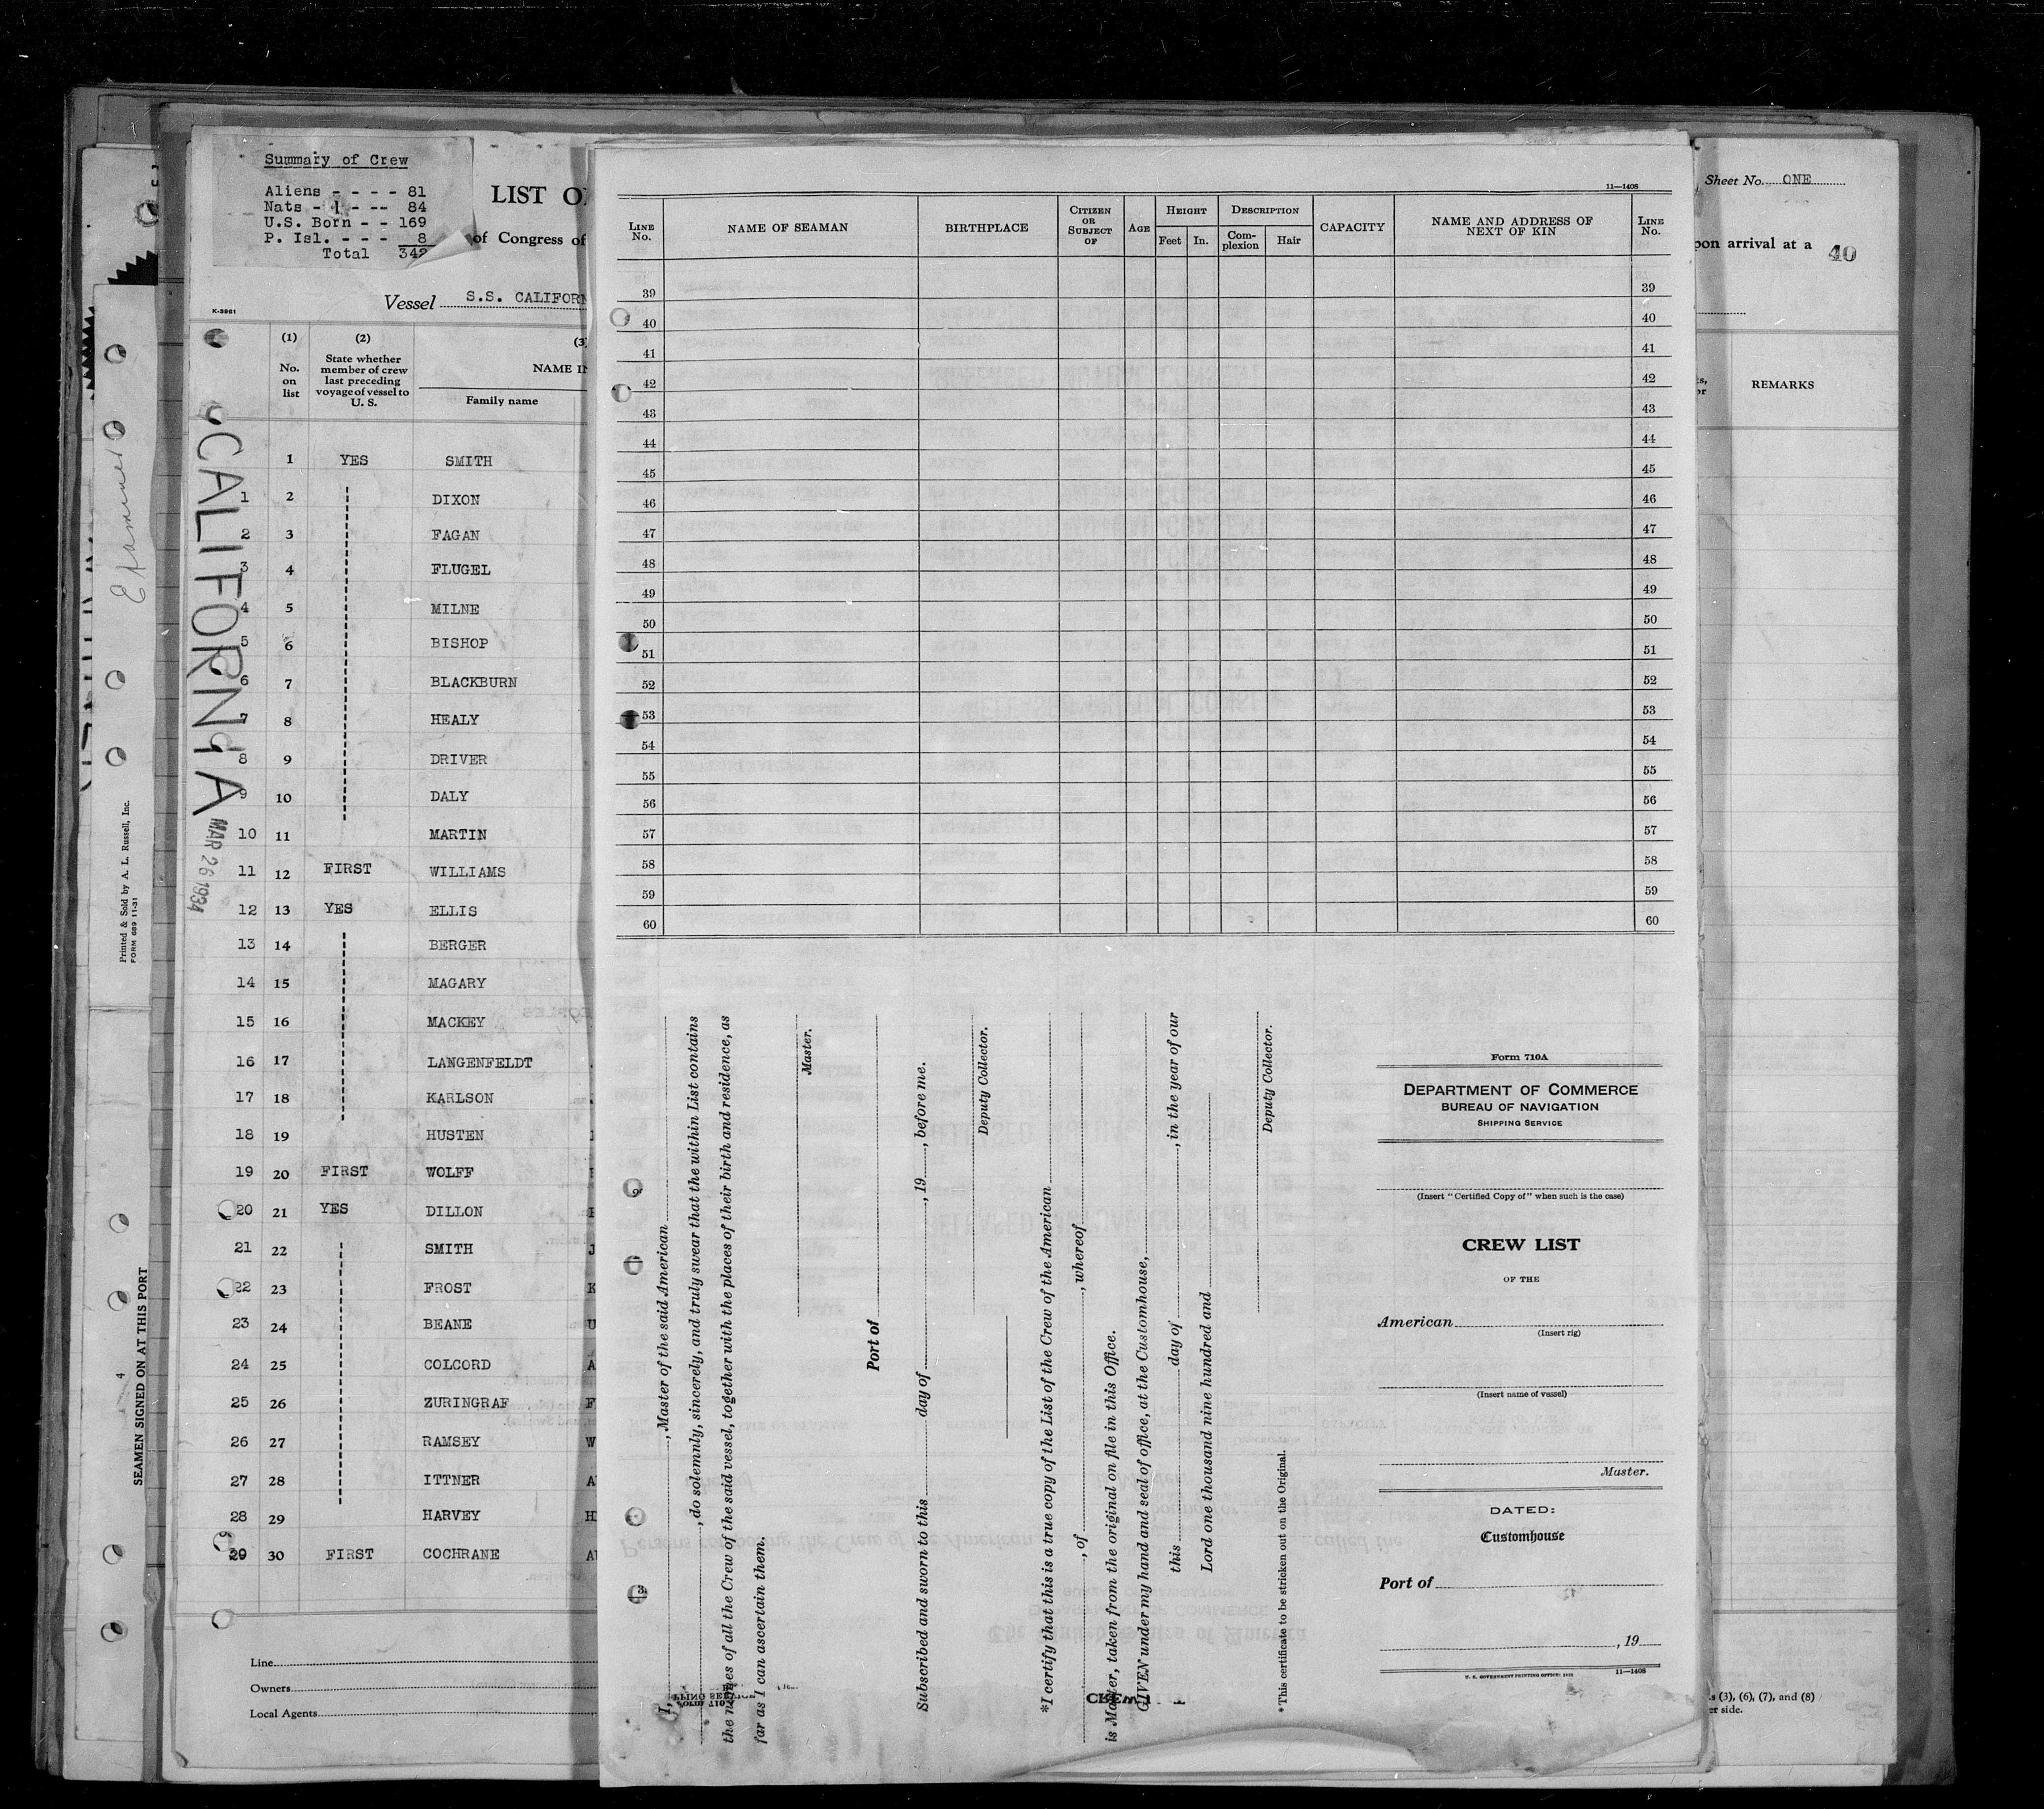 Summary of Crew
Aliens - - - - 81
Nats - 1 - -- 84
U.S. Born - - 169
P. Isl. - - - 8
Total 342
LIST O
of Congress of
Vessel S.S. CALIFORN
K-3961
(1) (2) (3
No. on list
State whether member of crew last preceding voyage of vessel to U. S.
NAME I
Family name
CALIFORNIA
MAR 26 1934
1 YES SMITH
1 2 DIXON
2 3 FAGAN
3 4 FLUGEL
4 5 MILNE
5 6 BISHOP
6 7 BLACKBURN
7 8 HEALY
8 9 DRIVER
9 10 DALY
10 11 MARTIN
11 12 FIRST WILLIAMS
12 13 YES ELLIS
13 14 BERGER
14 15 MAGARY
15 16 MACKEY
16 17 LANGENFELDT
17 18 KARLSON
18 19 HUSTEN
19 20 FIRST WOLFF
20 21 YES DILLON
21 22 SMITH J
22 23 FROST K
23 24 BEANE U
24 25 COLCORD A
25 26 ZURINGRAF F
26 27 RAMSEY W
27 28 ITTNER A
28 29 HARVEY H
29 30 FIRST COCHRANE A
Line
Owners
Local Agents
Examiner
Printed & Sold by A. L. Russell, Inc.
FORM 689 11-31
4
SEAMEN SIGNED ON AT THIS PORT
11—1408
LINE No. NAME OF SEAMAN BIRTHPLACE CITIZEN OR SUBJECT OF AGE HEIGHT Feet In. DESCRIPTION Complexion Hair CAPACITY NAME AND ADDRESS OF NEXT OF KIN LINE No.
39 39
40 40
41 41
42 42
43 43
44 44
45 45
46 46
47 47
48 48
49 49
50 50
51 51
52 52
53 53
54 54
55 55
56 56
57 57
58 58
59 59
60 60
I, , Master of the said American
, do solemnly, sincerely, and truly swear that the within List contains
the names of all the Crew of the said vessel, together with the places of their birth and residence, as
far as I can ascertain them.
Master.
Port of
Subscribed and sworn to this day of , 19 , before me.
Deputy Collector.
*I certify that this is a true copy of the List of the Crew of the American
, of , whereof
is Master, taken from the original on file in this Office.
GIVEN under my hand and seal of office, at the Customhouse,
this day of , in the year of our
Lord one thousand nine hundred and
Deputy Collector.
*This certificate to be stricken out on the Original.
Form 710A
DEPARTMENT OF COMMERCE
BUREAU OF NAVIGATION
SHIPPING SERVICE
(Insert "Certified Copy of" when such is the case)
CREW LIST
OF THE
American
(Insert rig)
(Insert name of vessel)
Master.
DATED:
Customhouse
Port of
, 19
U. S. GOVERNMENT PRINTING OFFICE: 11—1408
Sheet No. ONE
pon arrival at a 40
REMARKS
s (3), (6), (7), and (8)
er side.